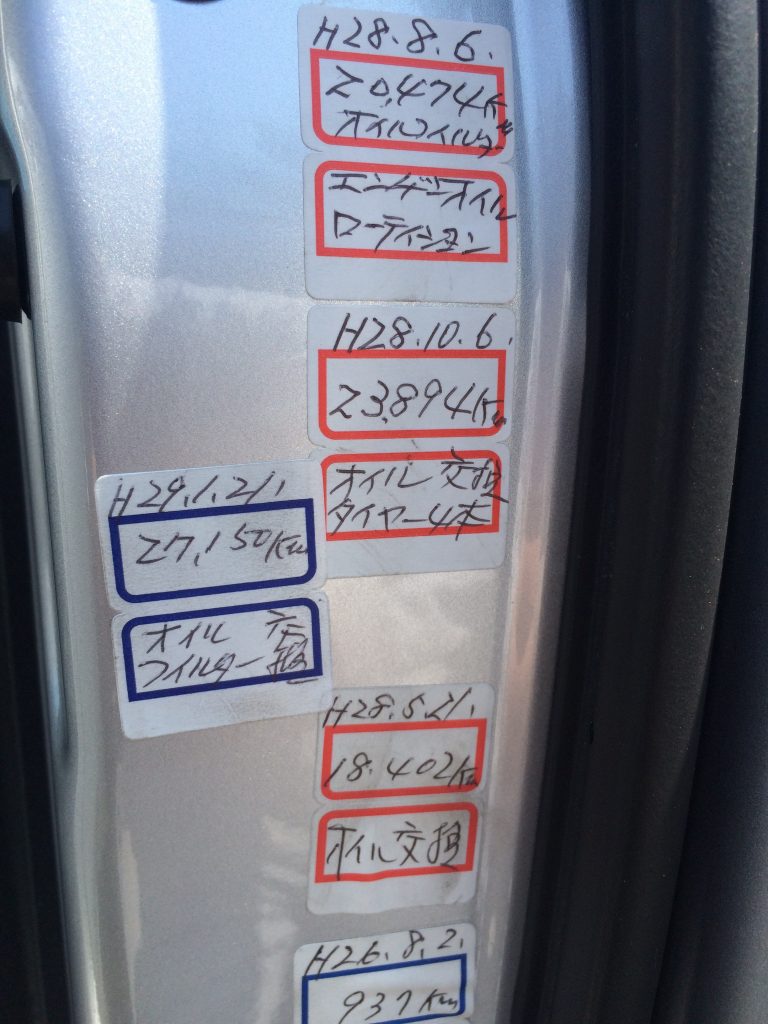 H28.8.6.
20,474Km
オイルフイルター
エンヂンオイル
ローテイション
H28.10.6.
23,894Km
オイル 交換
タイヤー4本
H29.1.21.
27,150Km
オイル 交
フイルター 換
H28.5.21.
18.402Km
オイル交換
H26.8.2.
937Km